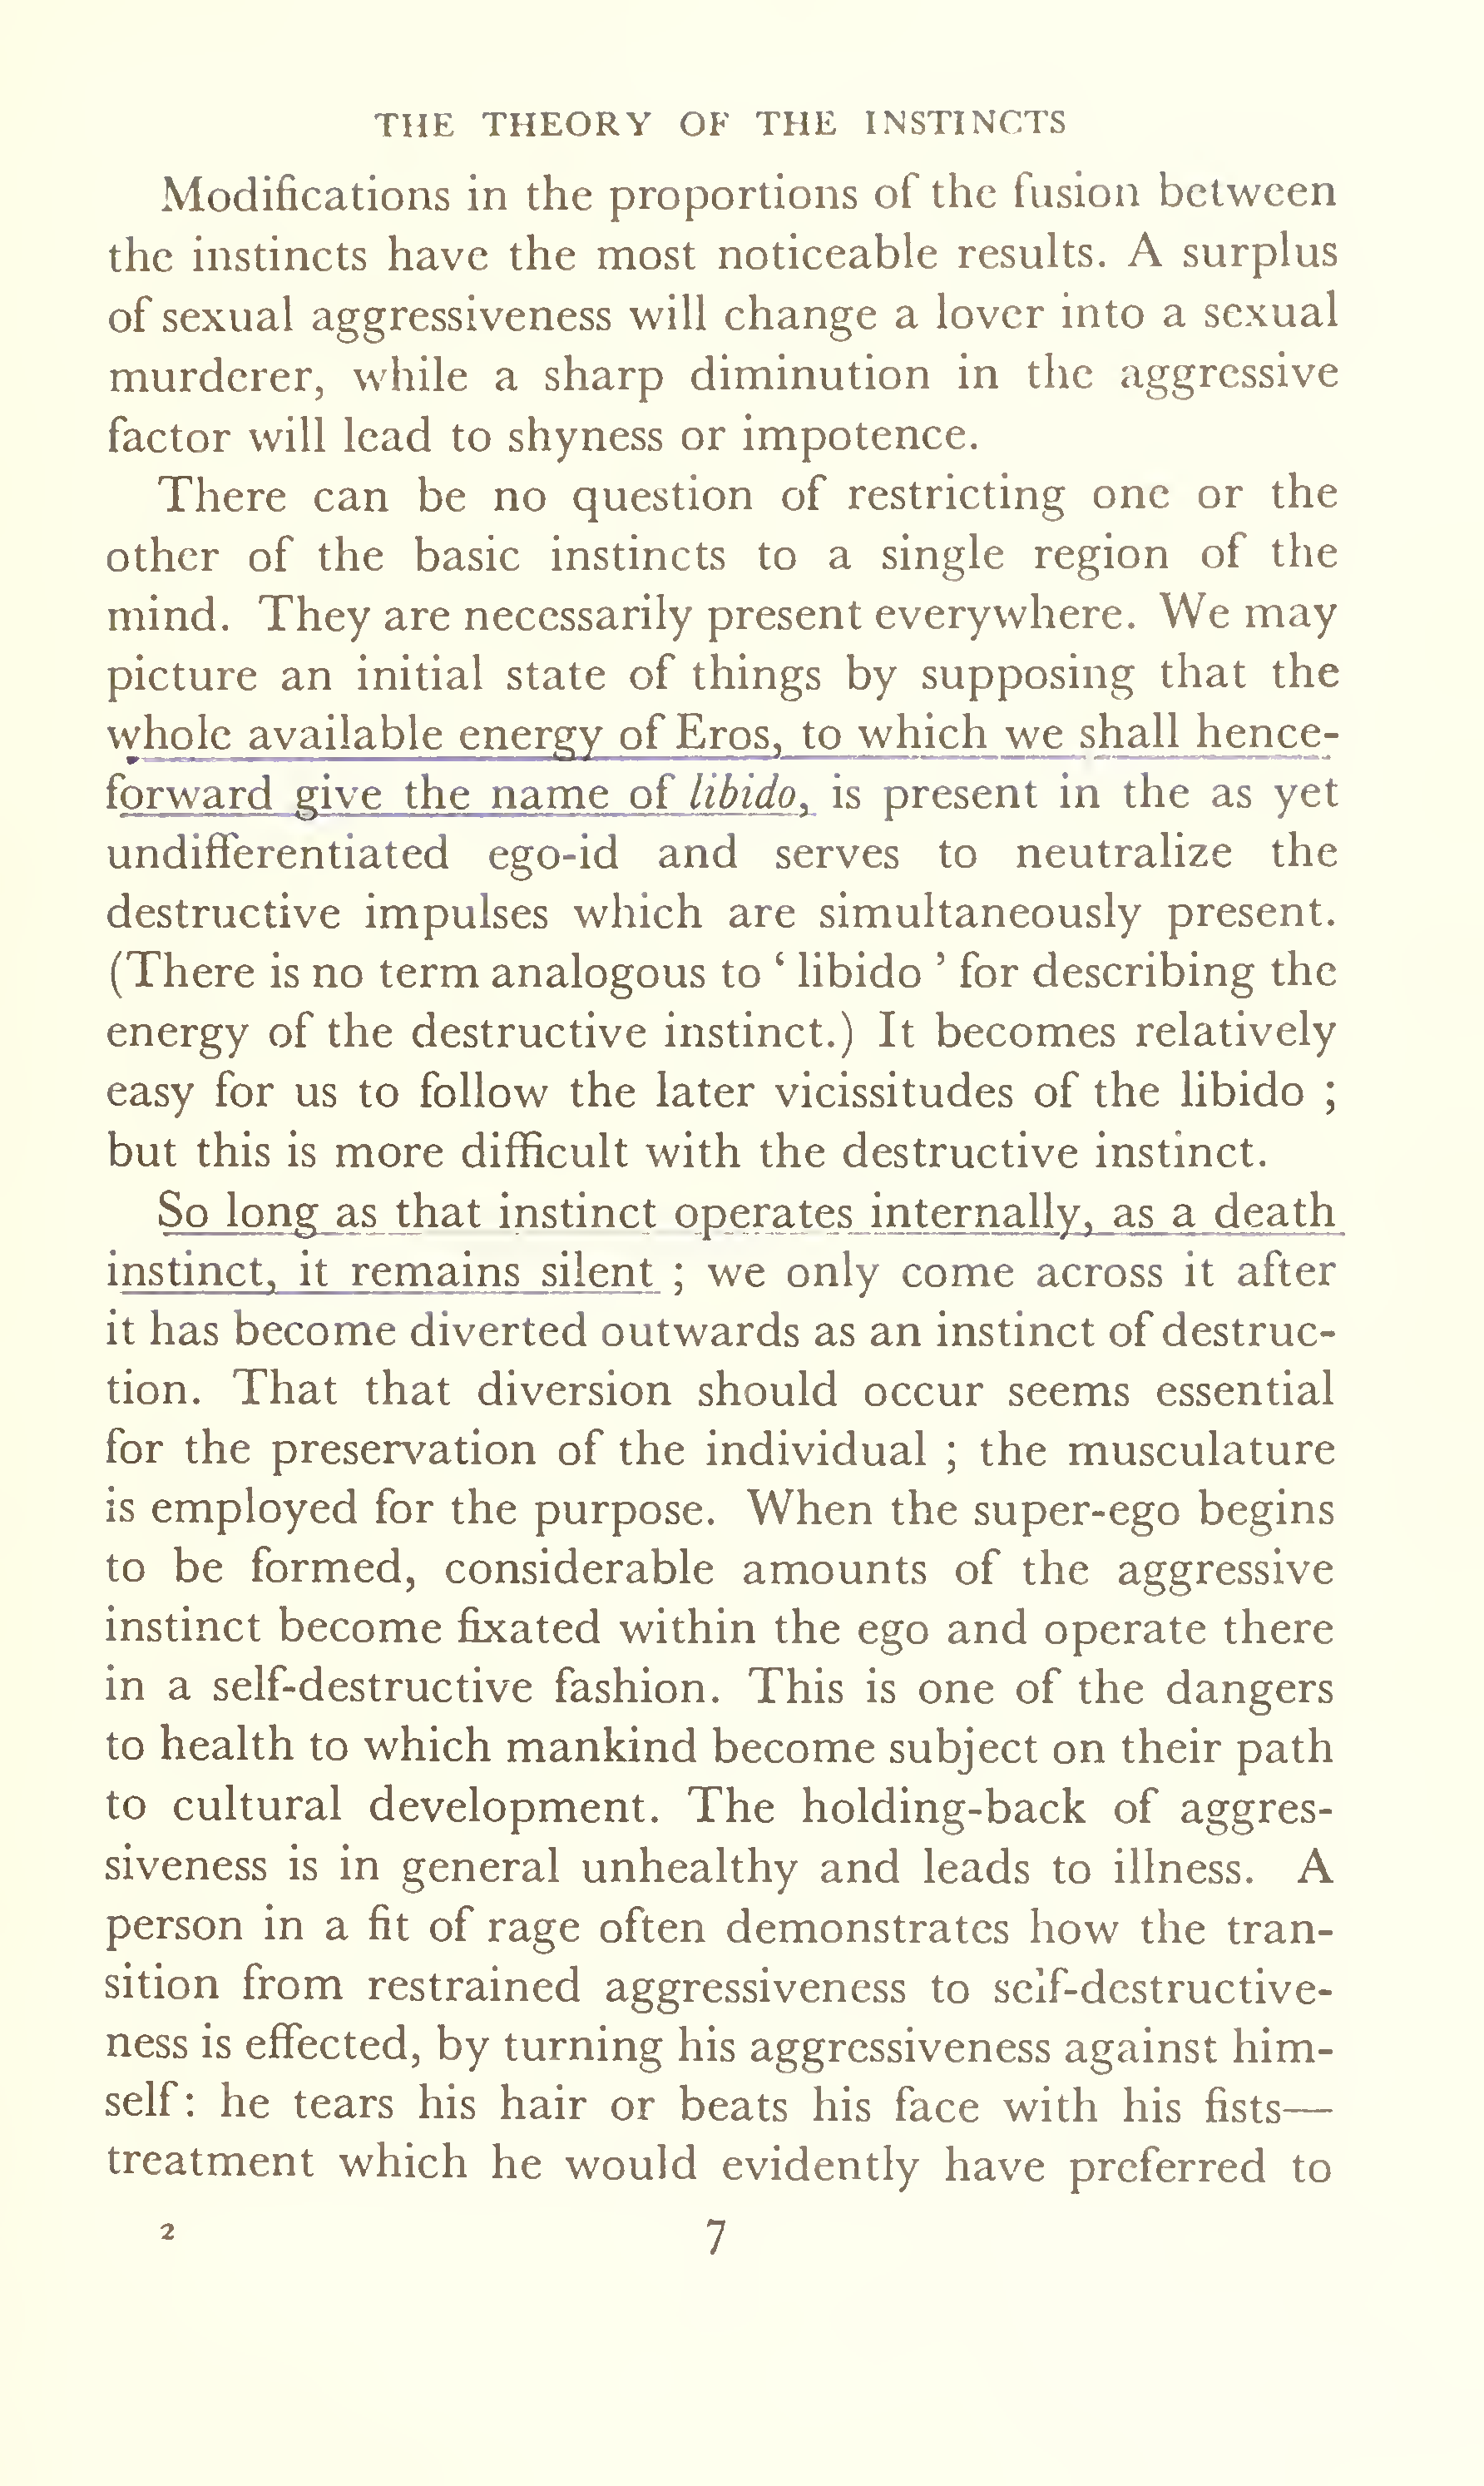 THE THEORY OF THE INSTINCTS
Modifications in the proportions of the fusion between
the instincts have the most noticeable results. A surplus
of sexual aggressiveness will change a lover into a sexual
murderer, while a sharp diminution in the aggressive
factor will lead to shyness or impotence.
There can be no question of restricting one or the
other of the basic instincts to a single region of the
mind. They are necessarily present everywhere. We may
picture an initial state of things by supposing that the
whole available energy of Eros, to which we shall hence-
forward give the name of libido, is present in the as yet
undifferentiated ego-id and serves to neutralize the
destructive impulses which are simultaneously present.
(There is no term analogous to ‘ libido ’ for describing the
energy of the destructive instinct.) It becomes relatively
easy for us to follow the later vicissitudes of the libido ;
but this is more difficult with the destructive instinct.
So long as that instinct operates internally, as a death
instinct, it remains silent ; we only come across it after
it has become diverted outwards as an instinct of destruc-
tion. That that diversion should occur seems essential
for the preservation of the individual ; the musculature
is employed for the purpose. When the super-ego begins
to be formed, considerable amounts of the aggressive
instinct become fixated within the ego and operate there
in a self-destructive fashion. This is one of the dangers
to health to which mankind become subject on their path
to cultural development. The holding-back of aggres-
siveness is in general unhealthy and leads to illness. A
person in a fit of rage often demonstrates how the tran-
sition from restrained aggressiveness to self-destructive-
ness is effected, by turning his aggressiveness against him-
self: he tears his hair or beats his face with his fists—
treatment which he would evidently have preferred to
2 7